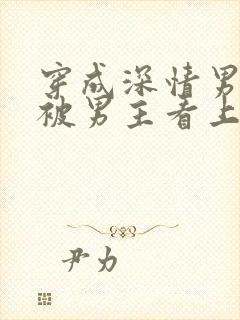 穿成深情男
被男主看上
尹力